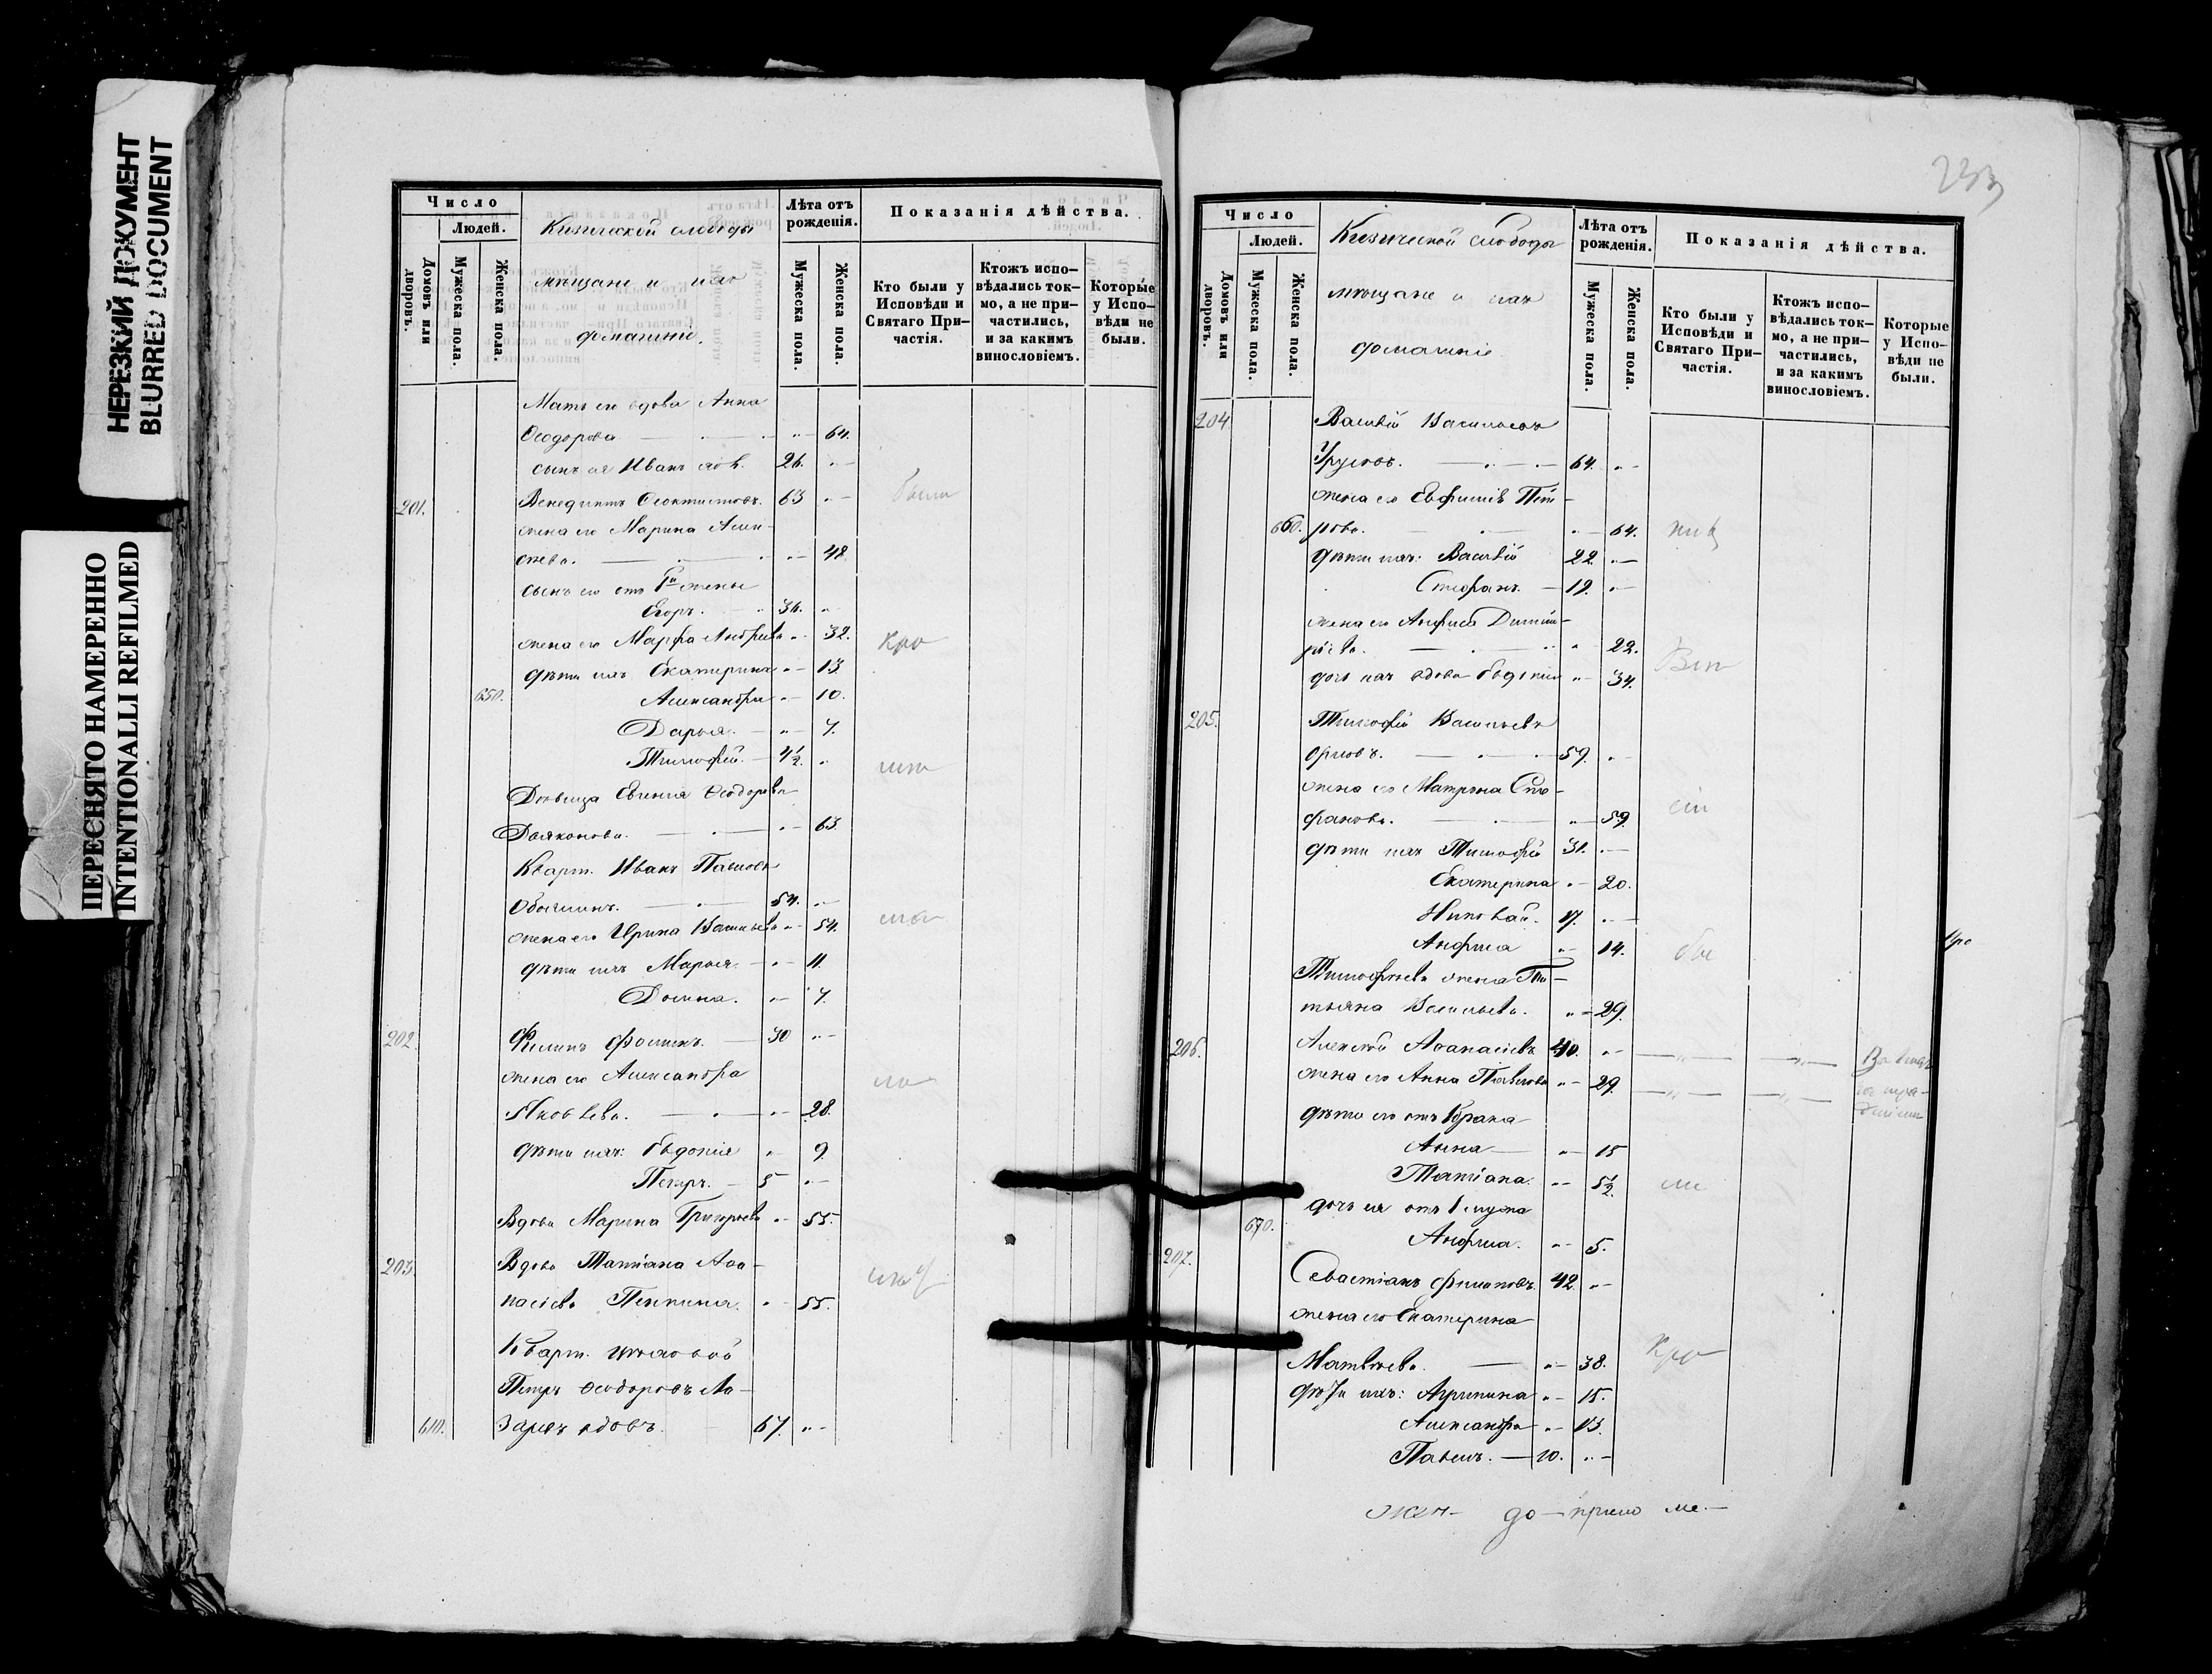 НЕРЕЗКИЙ ДОКУМЕНТ
BLURRED DOCUMENT
ПЕРЕСНЯТО НАМЕРЕННО
INTENTIONALLI REFILMED
Число
Людей.
Домовъ или дворовъ.
Мужеска пола.
Женска пола.
Кизической слободы
мѣщане и ихъ
домашніе.
Лѣта отъ рожденія.
Мужеска пола.
Женска пола.
Показанія дѣйства.
Кто были у Исповѣди и Святаго При-
частія.
Ктожъ испо-
вѣдались ток-
мо, а не при-
частились,
и за какимъ
винословіемъ.
Которые
у Испо-
вѣди не
были.
Мать его вдова Анна
Ѳеодорова 64.
сынъ ея Иванъ 26.
201. Венедиктъ Ѳеоктистовъ. 63 были
жена его Марина Алек-
сѣева. 48
сынъ его отъ 1й жены
Егоръ. 36.
жена его Марфа Андреева 32.
дѣти ихъ Екатерина 13
650. Александра 10.
Дарья. 7.
Тимофей. 4½
Дѣвица Евгенія Ѳеодорова
Дьяконова. 63
Кварт. Иванъ Павловъ
54.
жена его Ирина Васильева 54.
дѣти ихъ Марья 11.
Домна. 7.
202. Филипъ Фоминъ. 30
жена его Александра
Яковлева. 28.
дѣти ихъ: Евдокія 9
Петръ. 5
Вдова Марина Григорьева 55.
203. Вдова Татіана Аѳа-
насіева 55.
Кварт. цеховой
Петръ Ѳеодоровъ Ла-
610. заревъ вдовъ. 67.
233
Число
Людей.
Домовъ или дворовъ.
Мужеска пола.
Женска пола.
Кизической слободы
мѣщане и ихъ
домашніе
Лѣта отъ рожденія.
Мужеска пола.
Женска пола.
Показанія дѣйства.
Кто были у
Исповѣди и
Святаго При-
частія.
Ктожъ испо-
вѣдались ток-
мо, а не при-
частились,
и за какимъ
винословіемъ.
Которые
у Испо-
вѣди не
были.
204 Василій Васильевъ
Урусовъ. 64.
жена его Евфимія Пет-
660. рова. 64.
дѣти ихъ: Василій 22
Стефанъ. 19.
жена его Анфиса Димит-
ріева. 22.
дочь ихъ вдова Евдокія 34.
205. Тимофей Васильевъ
Орловъ. 59.
жена его Матрона Сте-
фанова. 59
дѣти ихъ Тимофей 31.
Екатерина 20.
Николай. 17.
Анфиса 14.
Тимофеева жена Та-
тьяна Васильева. 29.
206. Алексей Аѳанасіевъ 40.
жена его Анна Павлова 29.
дѣти его отъ 1 брака
Анна 15
Татіана. 5½
дочь ея отъ 1 мужа
670. Анфиса. 5.
207. Севастіанъ Филиповъ. 42.
жена его Екатерина
Матвѣева. 38.
дѣти ихъ: Агрипина 15.
Александра 13.
Павелъ. 10.